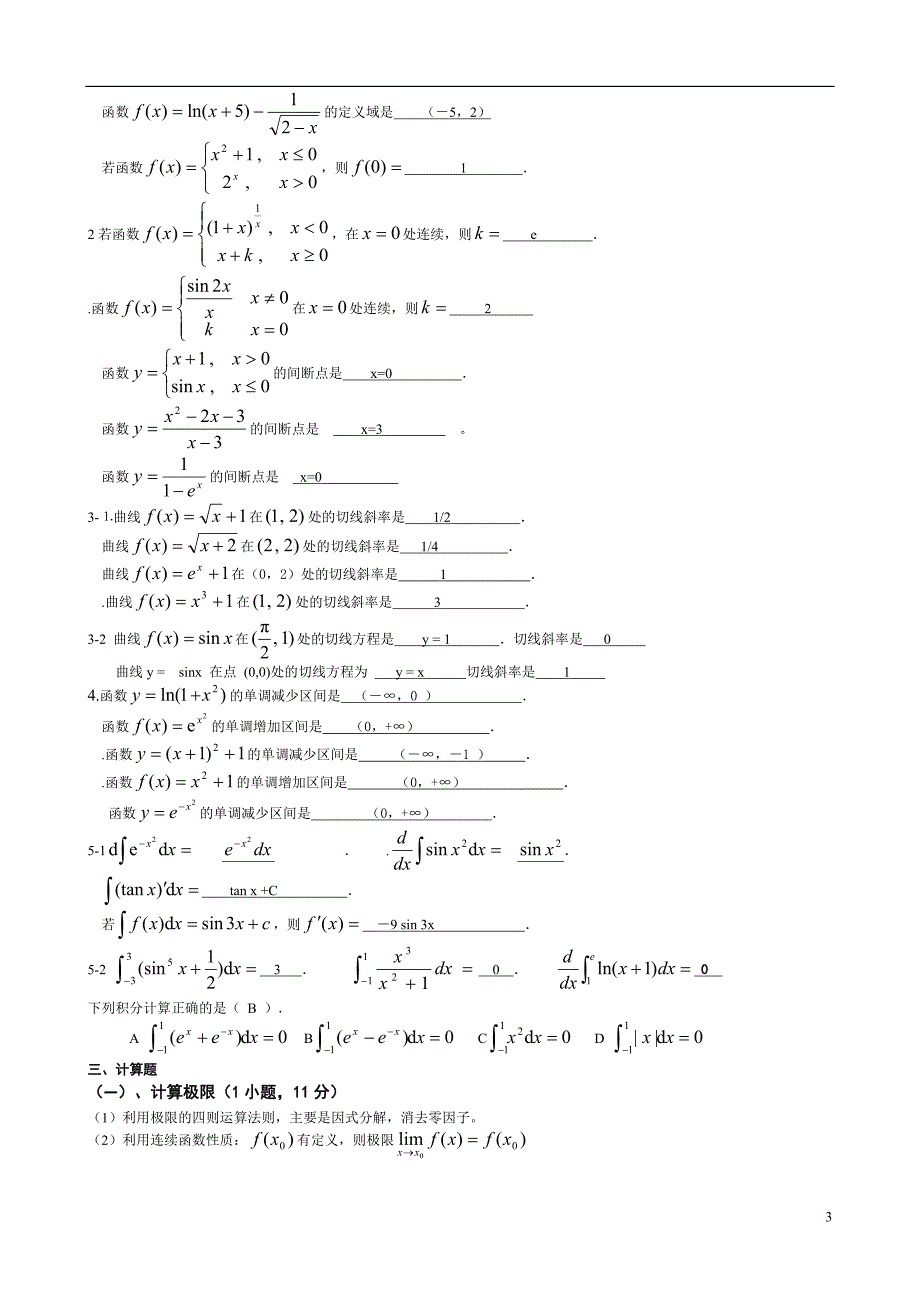 函数 f(x) = ln(x+5) − 1/√(2−x) 的定义域是 (－5, 2)
若函数 f(x) = { x² + 1, x ≤ 0; 2ˣ, x > 0 ，则 f(0) = 1 ．
2若函数 f(x) = { (1+x)^(1/x), x < 0; x + k, x ≥ 0 ，在 x = 0 处连续，则 k = e ．
.函数 f(x) = { sin 2x / x  x ≠ 0; k  x = 0 在 x = 0 处连续，则 k = 2
函数 y = { x + 1, x > 0; sin x, x ≤ 0 的间断点是 x=0 ．
函数 y = (x² − 2x − 3)/(x − 3) 的间断点是 x=3 。
函数 y = 1/(1 − eˣ) 的间断点是 x=0
3- 1.曲线 f(x) = √x + 1 在 (1, 2) 处的切线斜率是 1/2 ．
曲线 f(x) = √(x+2) 在 (2, 2) 处的切线斜率是 1/4 ．
曲线 f(x) = eˣ + 1 在（0，2）处的切线斜率是 1 ．
.曲线 f(x) = x³ + 1 在 (1, 2) 处的切线斜率是 3 ．
3-2 曲线 f(x) = sin x 在 (π/2, 1) 处的切线方程是 y = 1 ．切线斜率是 0
曲线 y = sinx 在点 (0,0)处的切线方程为 y = x 切线斜率是 1
4.函数 y = ln(1 + x²) 的单调减少区间是 （－∞，0 ） ．
函数 f(x) = e^(x²) 的单调增加区间是 （0，+∞） ．
.函数 y = (x+1)² + 1 的单调减少区间是 （－∞，－1 ） ．
.函数 f(x) = x² + 1 的单调增加区间是 （0，+∞） ．
函数 y = e^(−x²) 的单调减少区间是 （0，+∞） ．
5-1 d∫e^(−x²)dx = e^(−x²)dx ． .d/dx ∫sin x²dx = sin x² ．
∫(tan x)′dx = tan x +C ．
若 ∫f(x)dx = sin 3x + c，则 f′(x) = －9 sin 3x ．
5-2 ∫₋₃³ (sin⁵ x + 1/2)dx = 3 ． ∫₋₁¹ x³/(x² + 1) dx = 0 ． d/dx ∫₁ᵉ ln(x+1)dx = 0
下列积分计算正确的是（ B ）．
A ∫₋₁¹ (eˣ + e⁻ˣ)dx = 0 B ∫₋₁¹ (eˣ − e⁻ˣ)dx = 0 C ∫₋₁¹ x²dx = 0 D ∫₋₁¹ | x |dx = 0
三、计算题
（一）、计算极限（1小题，11分）
（1）利用极限的四则运算法则，主要是因式分解，消去零因子。
（2）利用连续函数性质：f(x₀) 有定义，则极限 lim_(x→x₀) f(x) = f(x₀)
3